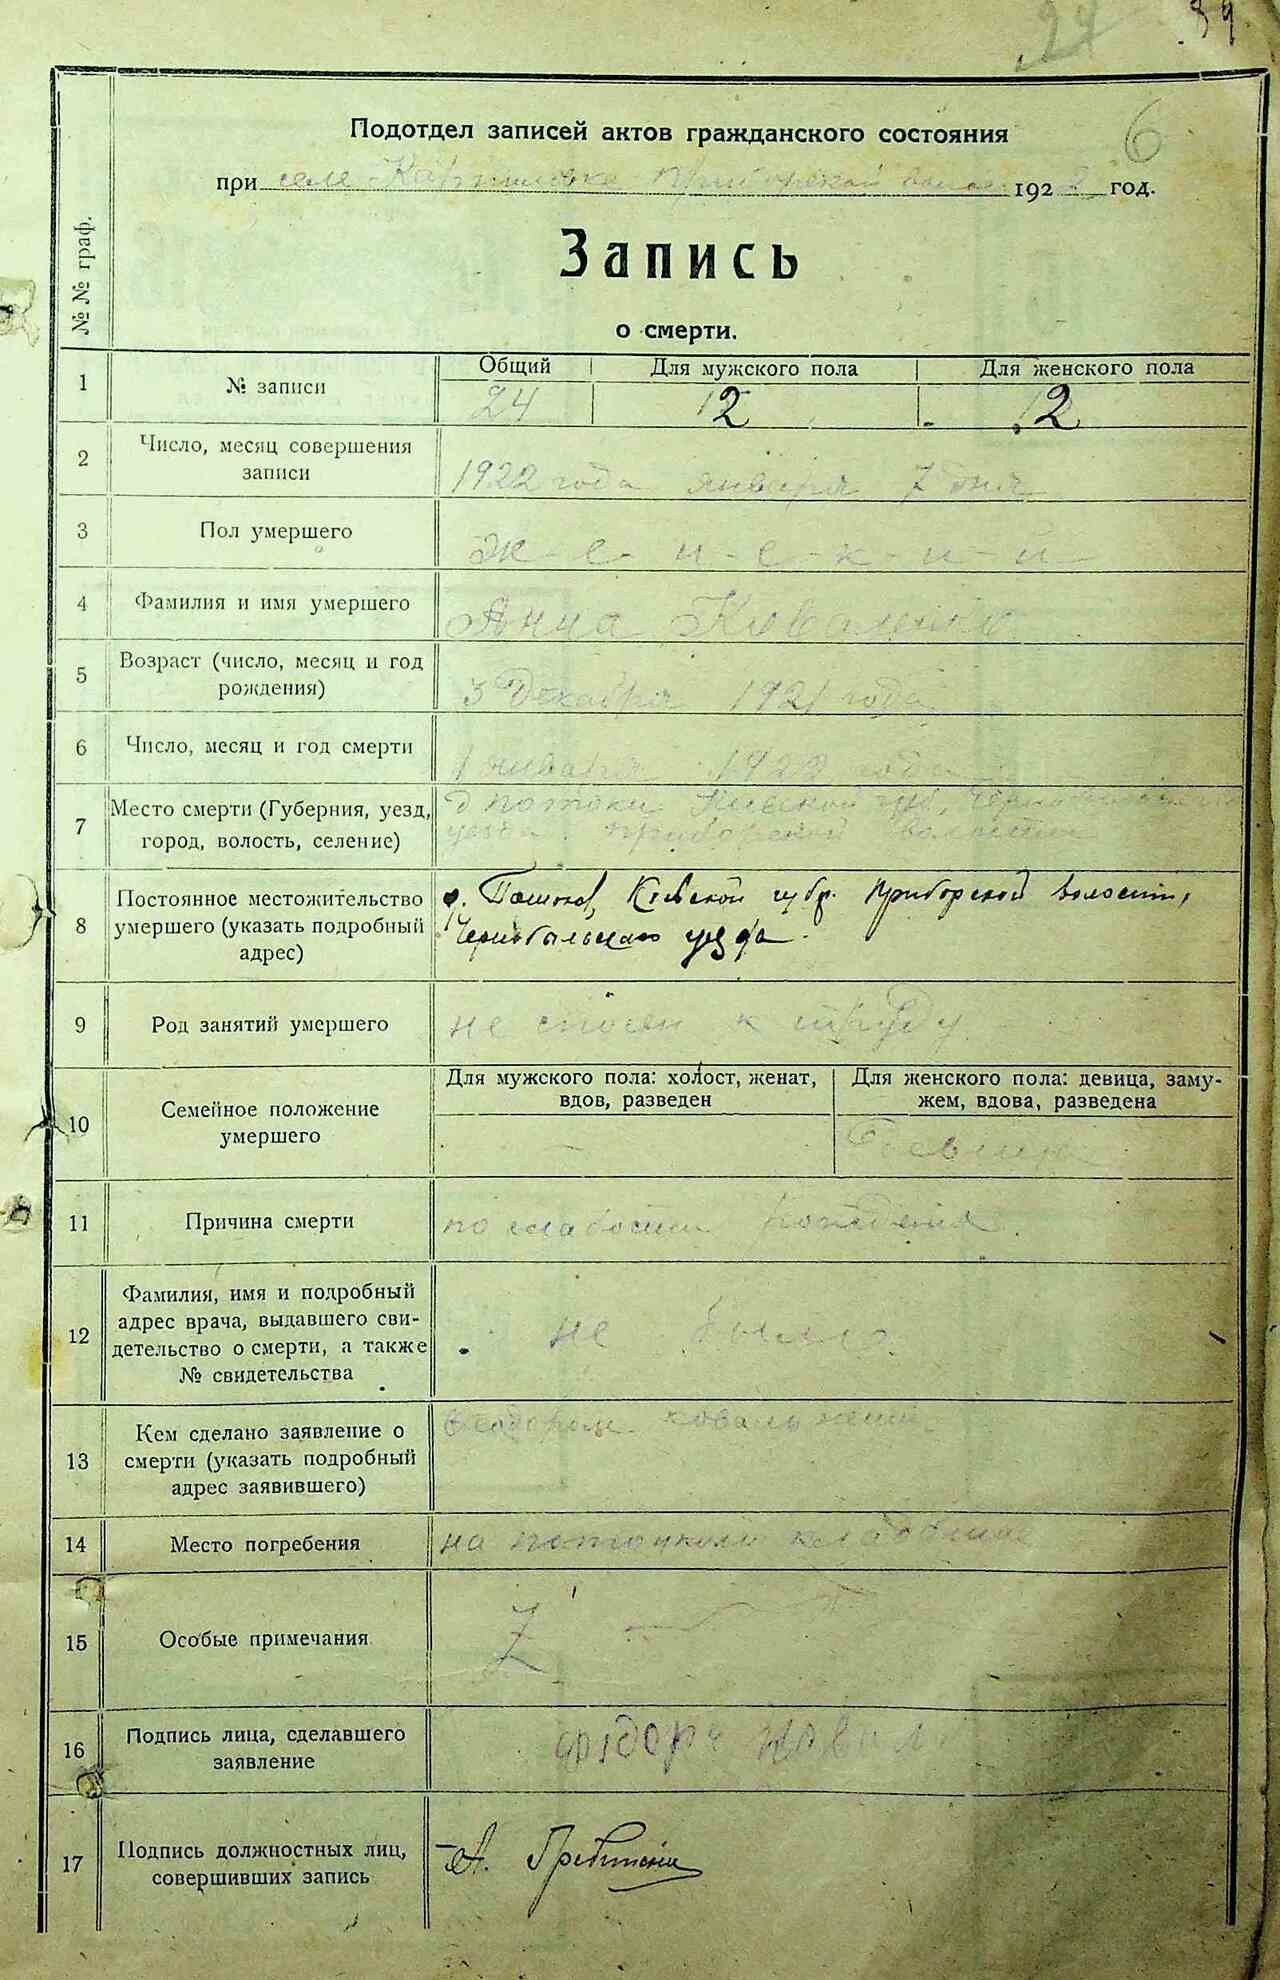 24
Подотдел записей актов гражданского состояния
6
при селе Карпиловке Приборской волос. 1922 год.
№№ граф.
Запись
о смерти.
1 № записи Общий Для мужского пола Для женского пола
24 12 12
2 Число, месяц совершения записи
1922 года января 7 дня
3 Пол умершего
ж-е-н-с-к-и-й
4 Фамилия и имя умершего
Анна
5 Возраст (число, месяц и год рождения)
3 декабря 1921 года
6 Число, месяц и год смерти
1 января 1922 года
7 Место смерти (Губерния, уезд, город, волость, селение)
д потоки Киевской губ,
уезда Приборской волости
8 Постоянное местожительство умершего (указать подробный адрес)
Киевской губ. Приборской волости,
Чернобыльскаго уезда.
9 Род занятий умершего
не спосоен к труду
10 Семейное положение умершего
Для мужского пола: холост, женат, вдов, разведен
Для женского пола: девица, замужем, вдова, разведена
— Девица
11 Причина смерти
по слабости рождения
12 Фамилия, имя и подробный адрес врача, выдавшего свидетельство о смерти, а также № свидетельства
не было
13 Кем сделано заявление о смерти (указать подробный адрес заявившего)
14 Место погребения
на поточком кладбище
15 Особые примечания
16 Подпись лица, сделавшего заявление
17 Подпись должностных лиц, совершивших запись
А.